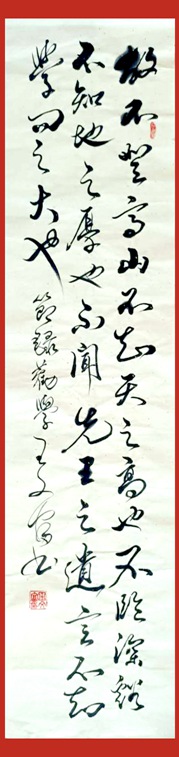 故不登高山不知天之高也不臨深谿
不知地之厚也不聞先王之遺言不知
學問之大也 節錄勸學 王文